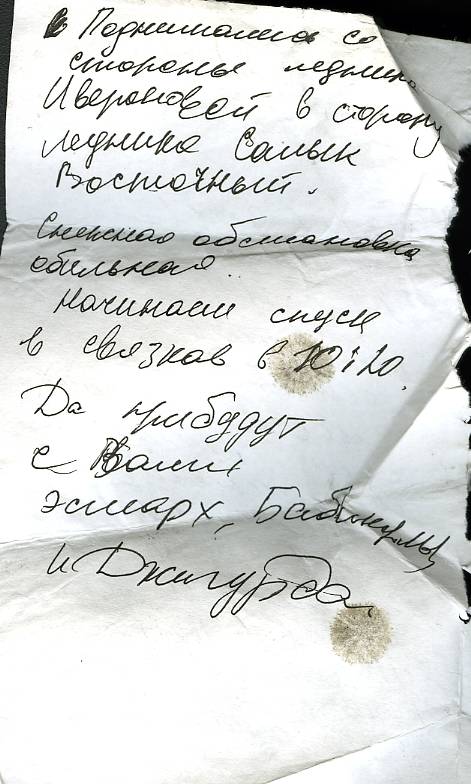 в Поднимались со
стороны ледника
Ивероновой в сторону
ледника Солык
Восточный.
Снежная обстановка
обильная.
Начинаем спуск
в связках в 10:20.
Да прибудут
с Вами
эсмарх,
и Джигурда.